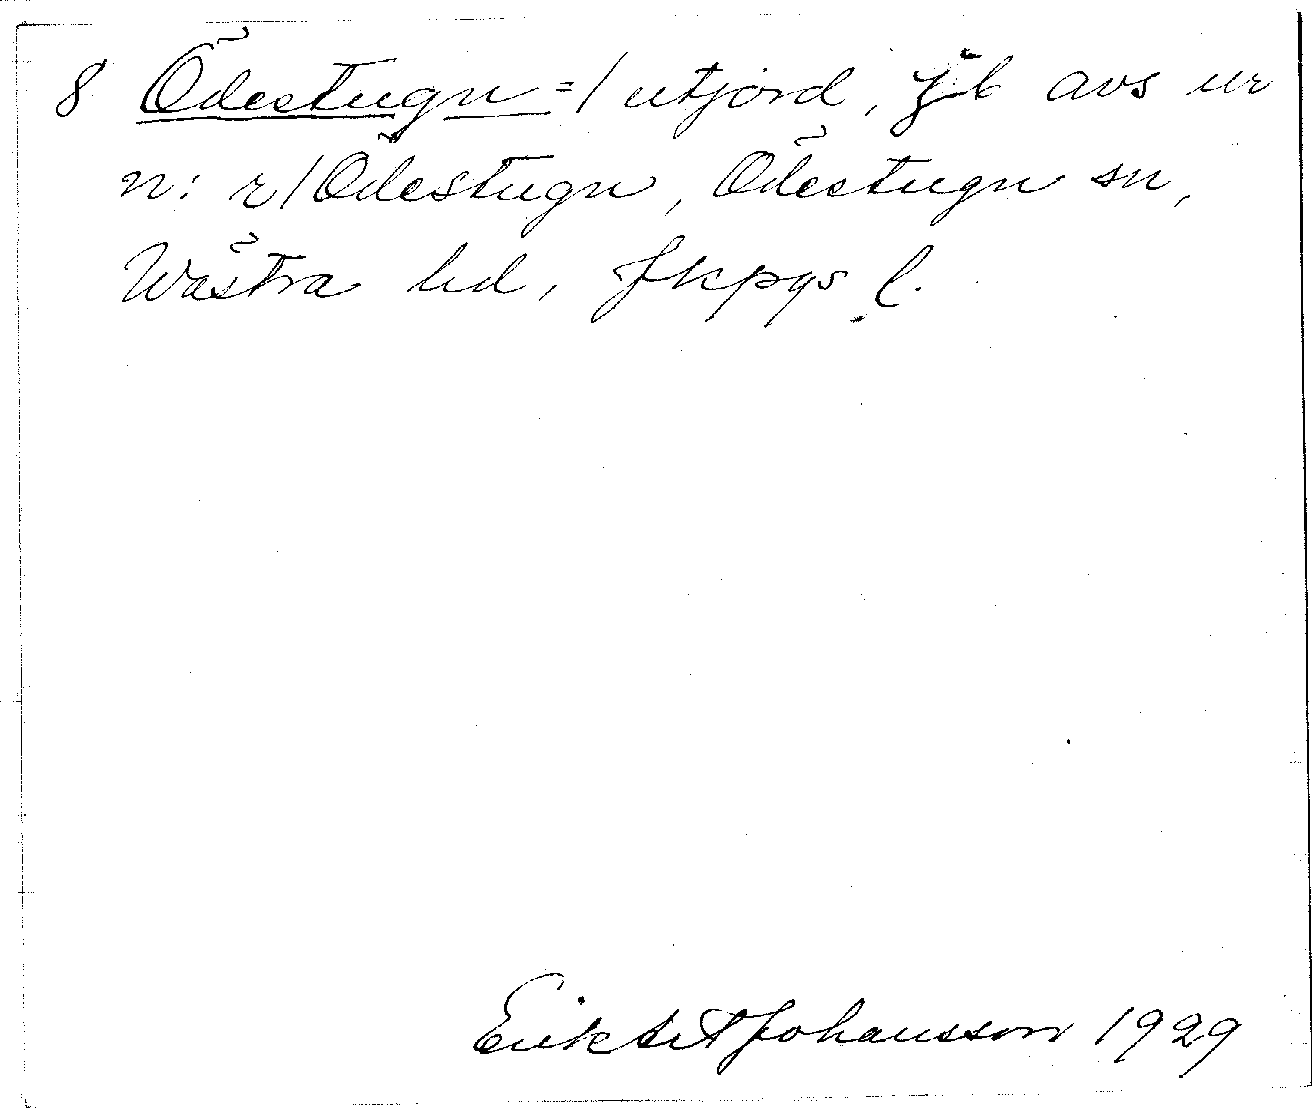 8 Ödestugu =/ utjord, jb avs ur
n: r/Ödestugu, Ödestugu sn,
Västra hd, Jkpgs l.
Erik Johansson 1929